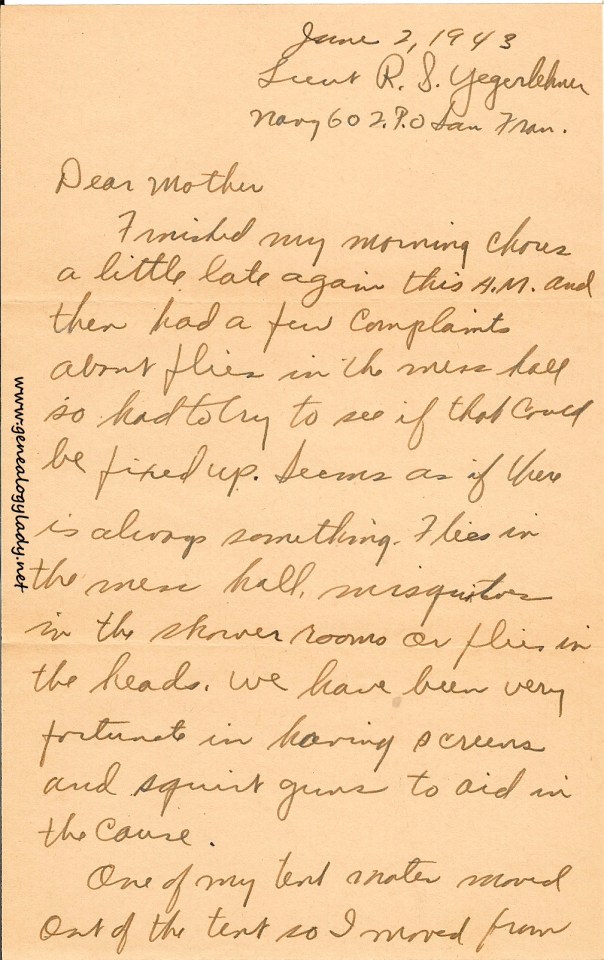 June 2, 1943
Lieut R. S. Yegerlehner
Navy 60 F.P.O San Fran.
Dear Mother
Finished my morning chores
a little late again this A.M. and
then had a few complaints
about flies in the mess hall
so had to try to see if that could
be fixed up. Seems as if there
is always something. Flies in
the mess hall, misquitoes
in the shower rooms or flies in
the heads. We have been very
fortunate in having screens
and squirt guns to aid in
the cause.
One of my tent mates moved
out of the tent so I moved from
www.genealogylady.net